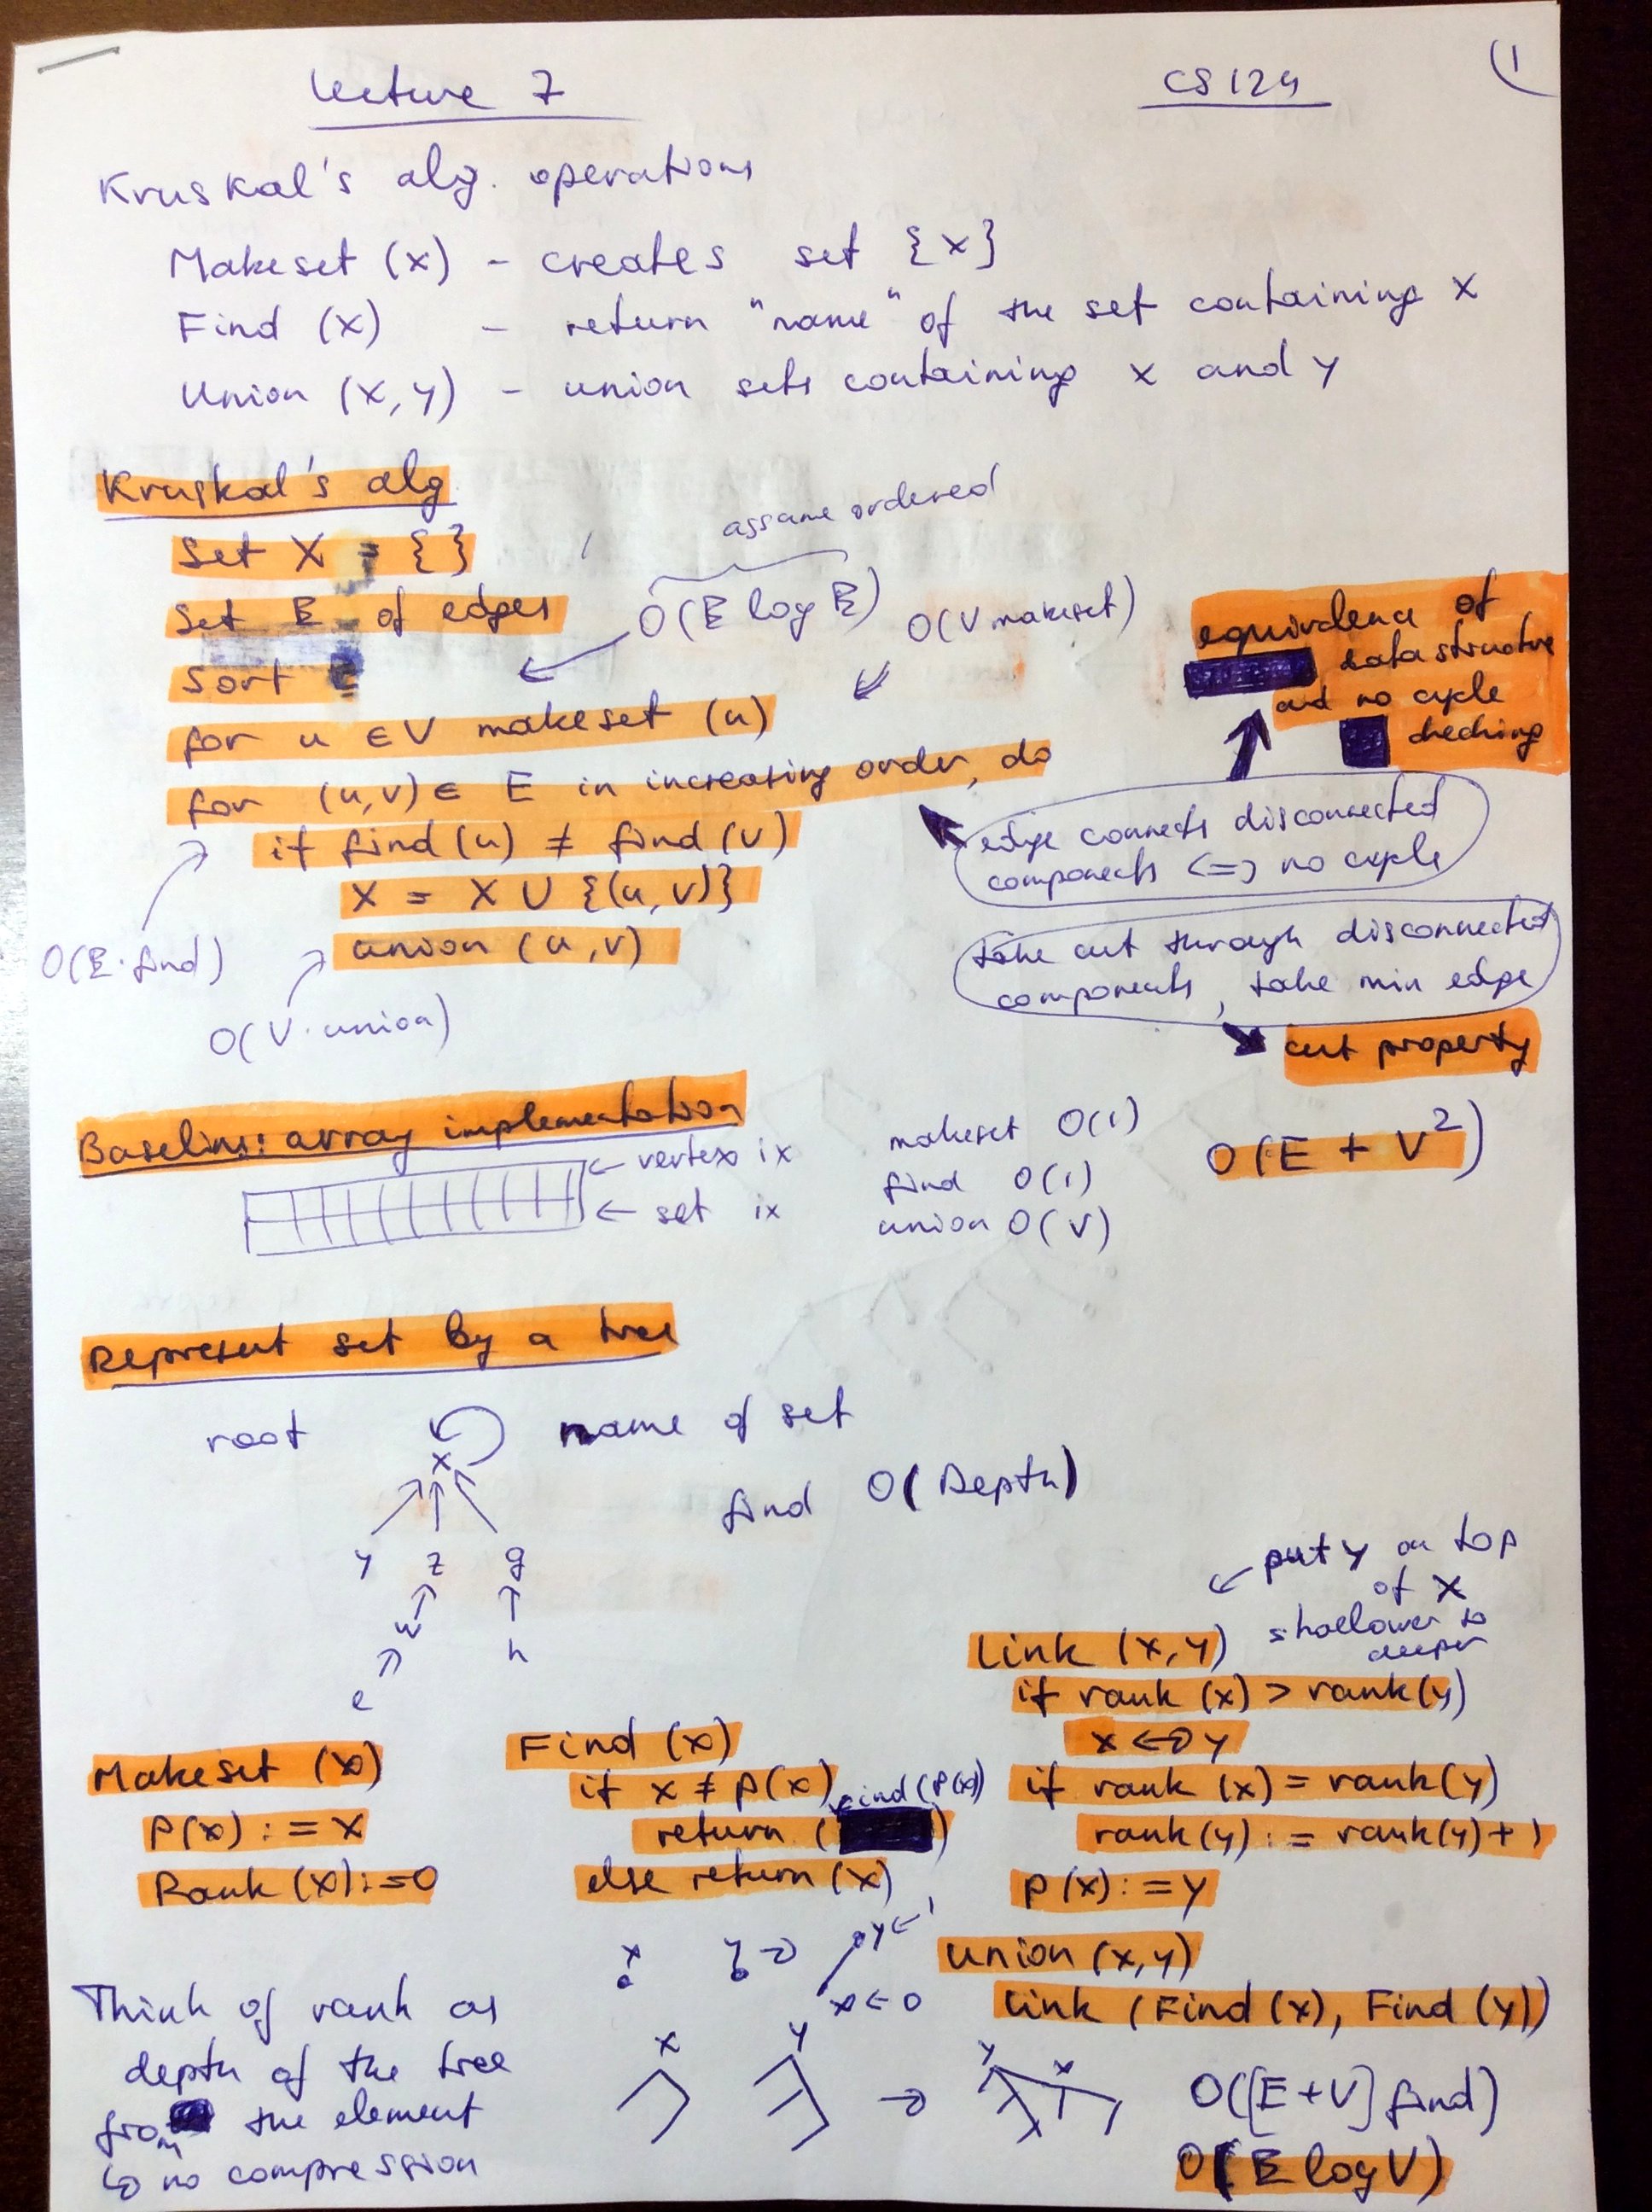 Lecture 7
CS 124
1
Kruskal's alg. operations
Makeset (x) - creates set {x}
Find (x) - return "name" of the set containing x
Union (x, y) - union sets containing x and y
Kruskal's alg
Set X = { }
Set E of edges
Sort E
for u ∈ V makeset (u)
for (u,v) ∈ E in increasing order, do
if find (u) ≠ find (v)
X = X ∪ {(u, v)}
union (u, v)
assume ordered
O(E log E)
O(V makeset)
O(E·find)
O(V·union)
equivalence of
data structure
and no cycle
checking
edge connects disconnected
components <=> no cycle
take cut through disconnected
components, take min edge
cut property
Baseline: array implementation
← vertex ix
← set ix
makeset O(1)
find O(1)
union O(V)
O(E + V²)
Represent set by a tree
root
name of set
x
find O(Depth)
y z g
w h
e
← put y on top
of x
shallower to
deeper
Makeset (x)
P(x) := x
Rank (x) := 0
Find (x)
if x ≠ p(x)
find (P(x))
return ( )
else return (x)
Link (x, y)
if rank (x) > rank(y)
x <-> y
if rank (x) = rank(y)
rank(y) := rank(y) + 1
p(x) := y
union (x, y)
Link (Find (x), Find (y))
x y → y ← 1
x ← 0
x y → y x
Think of rank as
depth of the tree
from the element
↳ no compression
O([E + V] find)
O(E log V)